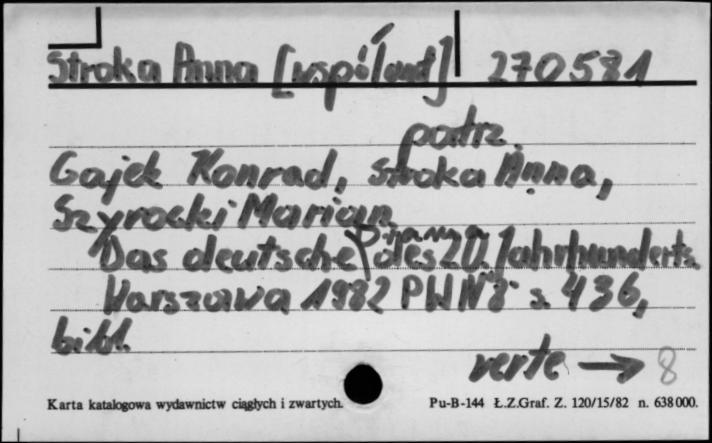 Stroka Anna [współaut] 270581
patrz
Gajek Konrad, Stroka Anna,
Szyrocki Marian
Drama
Das deutsche des 20. Jahrhunderts.
Warszawa 1982 PWN 8° s. 436,
bibl.
verte → 8
Karta katalogowa wydawnictw ciągłych i zwartych.
Pu-B-144 Ł.Z.Graf. Z. 120/15/82 n. 638000.